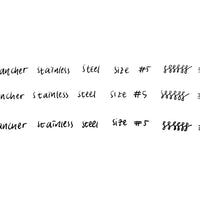 ancher stainless steel size #5
ancher stainless steel size #5
ancher stainless steel size #5